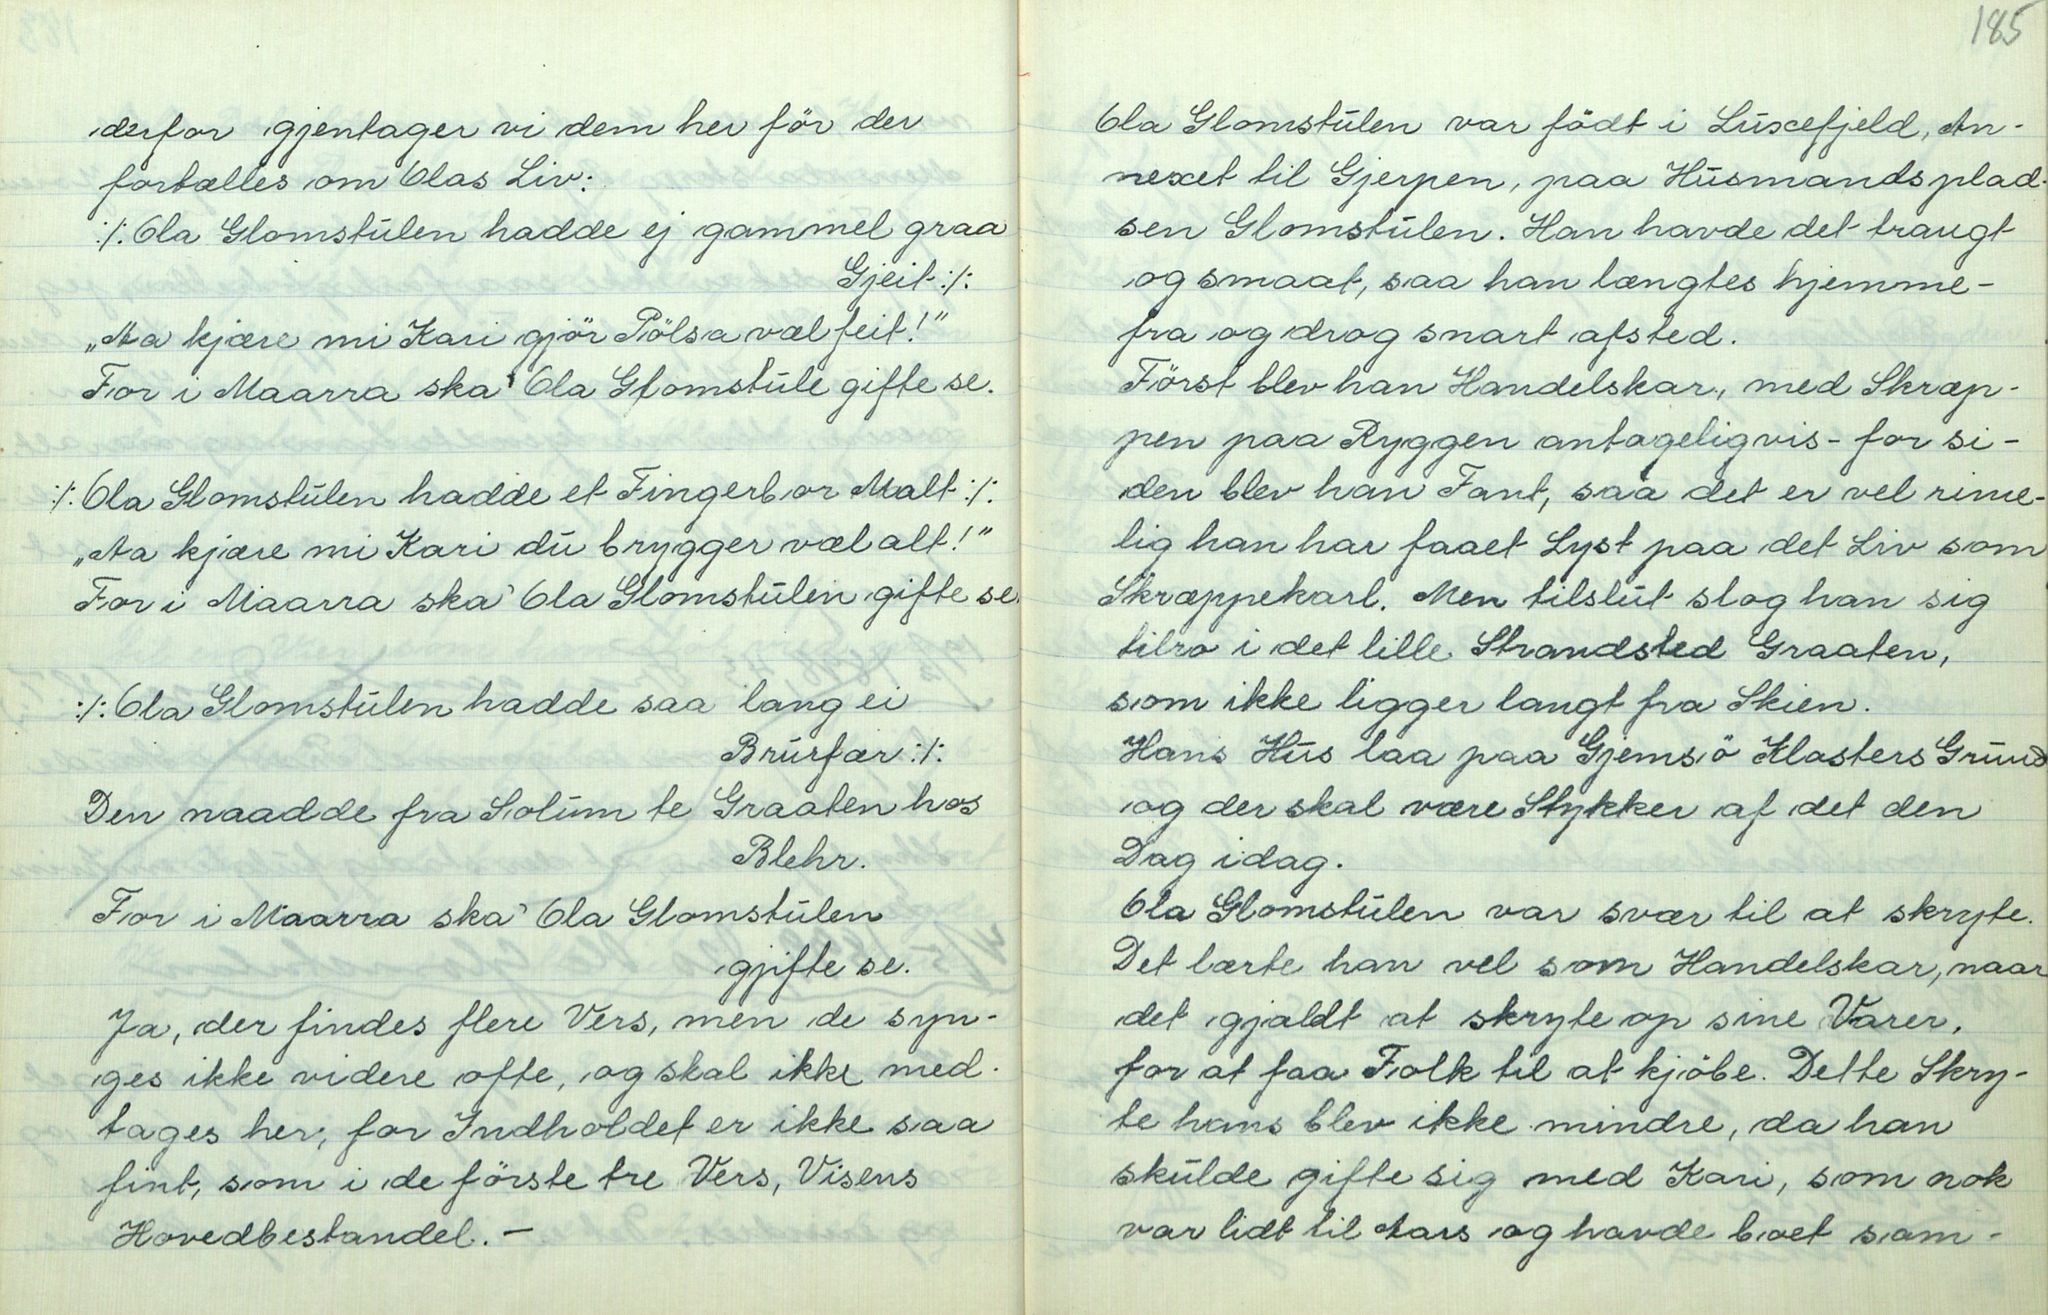 derfor gjentager vi dem her för der
fortælles om Olas Liv:
:/: Ola Glomstulen hadde ej gammel graa
Gjeit :/:
„Aa kjære mi Kari gjör Pölsa væl feit!"
For i Maarra ska' Ola Glomstule gifte se.
:/: Ola Glomstulen hadde et Fingerbor Malt :/:
„Aa kjære mi Kari du brygger væl alt!"
For i Maarra ska' Ola Glomstulen gifte se.
:/: Ola Glomstulen hadde saa lang ei
Brurfær :/:
Den naadde fra Solum te Graaten hos
Blehr.
For i Maarra ska' Ola Glomstulen
gjifte se.
Ja, der findes flere Vers, men de syn-
ges ikke videre ofte, og skal ikke med-
tages her; for Indholdet er ikke saa
fint, som i de förste tre Vers, Visens
Hovedbestandel. —
185
Ola Glomstulen var födt i Luxefjeld, An-
nexet til Gjerpen, paa Husmandsplad-
sen Glomstulen. Han havde det traugt
og smaat, saa han længtes hjemme-
fra og drog snart afsted.
Först blev han Handelskar, med Skræp-
pen paa Ryggen antageligvis - for si-
den blev han Fant, saa det er vel rime-
lig han har faaet Lyst paa det Liv som
Skræppekarl. Men tilslut slog han sig
tilro i det lille Strandsted Graaten,
som ikke ligger langt fra Skien.
Hans Hus laa paa Gjemsö Klosters Grund
og der skal være Stykker af det den
Dag idag.
Ola Glomstulen var svær til at skryte.
Det lærte han vel som Handelskar, naar
det gjaldt at skryte op sine Varer,
for at faa Folk til at kjöbe. Dette Skry-
te hans blev ikke mindre, da han
skulde gifte sig med Kari, som nok
var lidt til Aars og havde boet som-